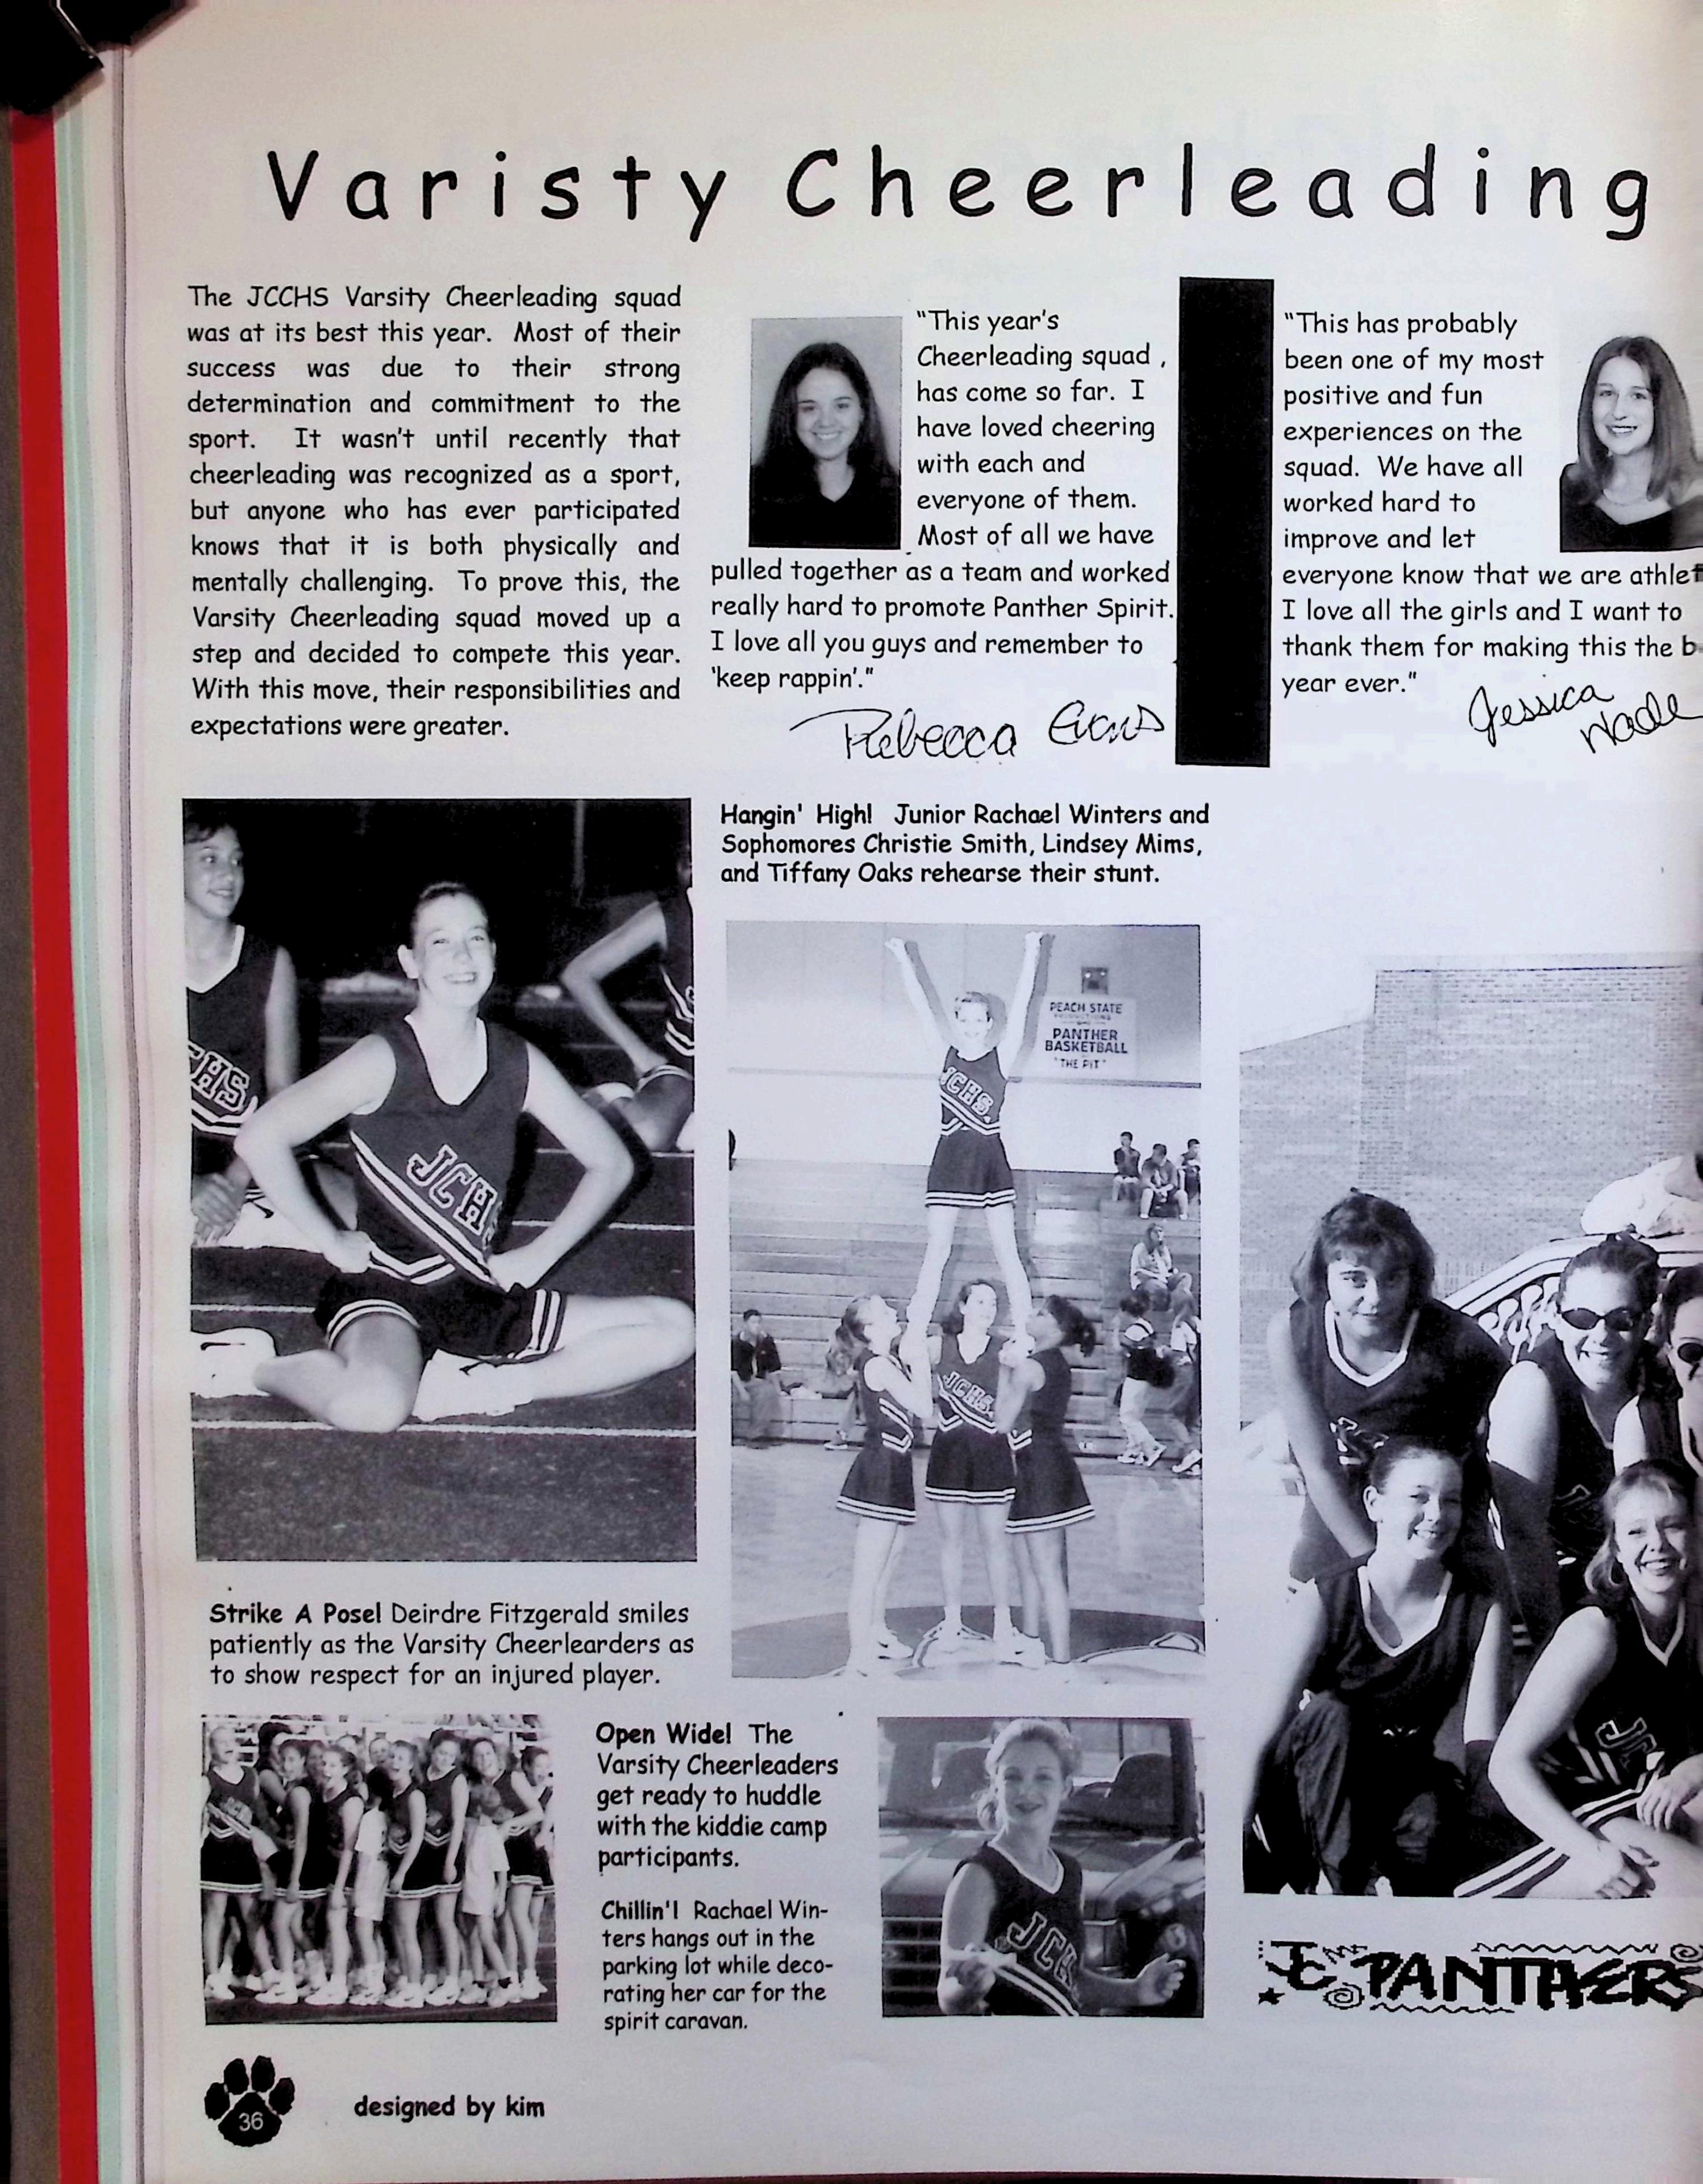 Varisty Cheerleading
The JCCHS Varsity Cheerleading squad
was at its best this year. Most of their
success was due to their strong
determination and commitment to the
sport. It wasn't until recently that
cheerleading was recognized as a sport,
but anyone who has ever participated
knows that it is both physically and
mentally challenging. To prove this, the
Varsity Cheerleading squad moved up a
step and decided to compete this year.
With this move, their responsibilities and
expectations were greater.
"This year's
Cheerleading squad ,
has come so far. I
have loved cheering
with each and
everyone of them.
Most of all we have
pulled together as a team and worked
really hard to promote Panther Spirit.
I love all you guys and remember to
'keep rappin'."
Rebecca Evans
"This has probably
been one of my most
positive and fun
experiences on the
squad. We have all
worked hard to
improve and let
everyone know that we are athlet
I love all the girls and I want to
thank them for making this the b
year ever."
Jessica
Wade
Hangin' High! Junior Rachael Winters and
Sophomores Christie Smith, Lindsey Mims,
and Tiffany Oaks rehearse their stunt.
CHS
JCH
PEACH STATE
PRODUCTIONS
PANTHER
BASKETBALL
"THE PIT"
JCHS
JCHS
Strike A Pose! Deirdre Fitzgerald smiles
patiently as the Varsity Cheerlearders as
to show respect for an injured player.
Open Wide! The
Varsity Cheerleaders
get ready to huddle
with the kiddie camp
participants.
Chillin'! Rachael Win-
ters hangs out in the
parking lot while deco-
rating her car for the
spirit caravan.
JCH
JC
JC PANTHERS
36
designed by kim